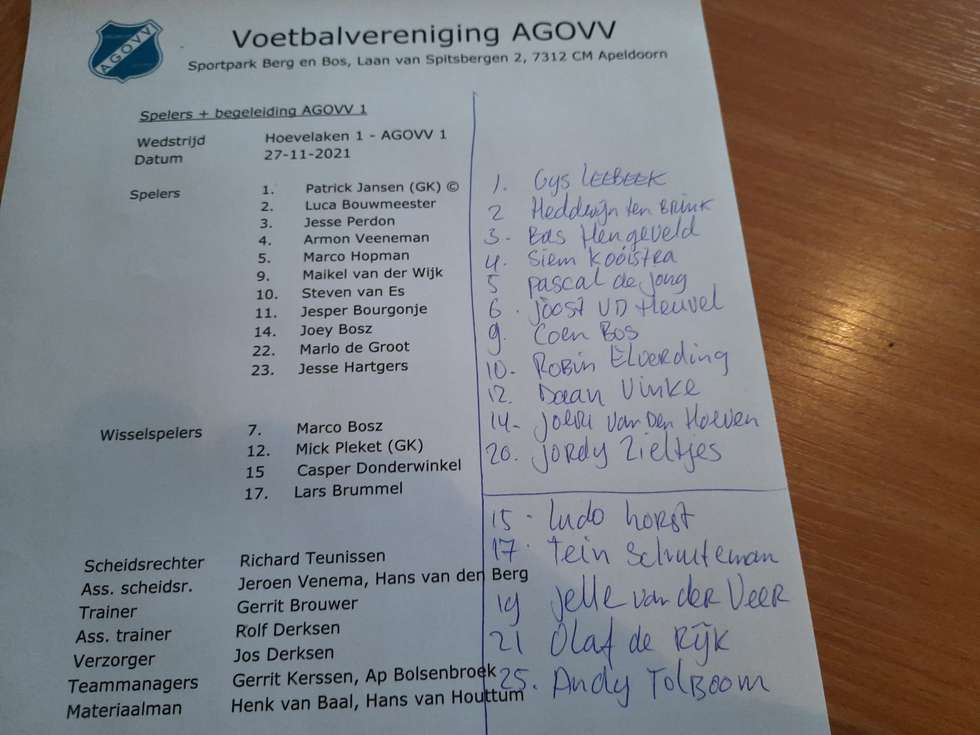 AGOVV
Voetbalvereniging AGOVV
Sportpark Berg en Bos, Laan van Spitsbergen 2, 7312 CM Apeldoorn
Spelers + begeleiding AGOVV 1
Wedstrijd Hoevelaken 1 - AGOVV 1
Datum 27-11-2021
Spelers 1. Patrick Jansen (GK) ©
2. Luca Bouwmeester
3. Jesse Perdon
4. Armon Veeneman
5. Marco Hopman
9. Maikel van der Wijk
10. Steven van Es
11. Jesper Bourgonje
14. Joey Bosz
22. Mario de Groot
23. Jesse Hartgers
Wisselspelers 7. Marco Bosz
12. Mick Pleket (GK)
15 Casper Donderwinkel
17. Lars Brummel
Scheidsrechter Richard Teunissen
Ass. scheidsr. Jeroen Venema, Hans van den Berg
Trainer Gerrit Brouwer
Ass. trainer Rolf Derksen
Verzorger Jos Derksen
Teammanagers Gerrit Kerssen, Ap Bolsenbroek
Materiaalman Henk van Baal, Hans van Houttum
1. Gys LEEBEEK
2 Heddewijn ten Brink
3- Bas Hengeveld
4. Siem Kooistra
5 pascal de jong
6. joost VD Heuvel
9. Coen Bos
10- Robin Elverding
12. Daan Vinke
14- joeri van Den Hoeven
20. jordy Zieltjes
15- ludo horst
17- tein Schuiteman
19 jelle van der Veer
21 Olaf de Rijk
25. Andy Tolboom